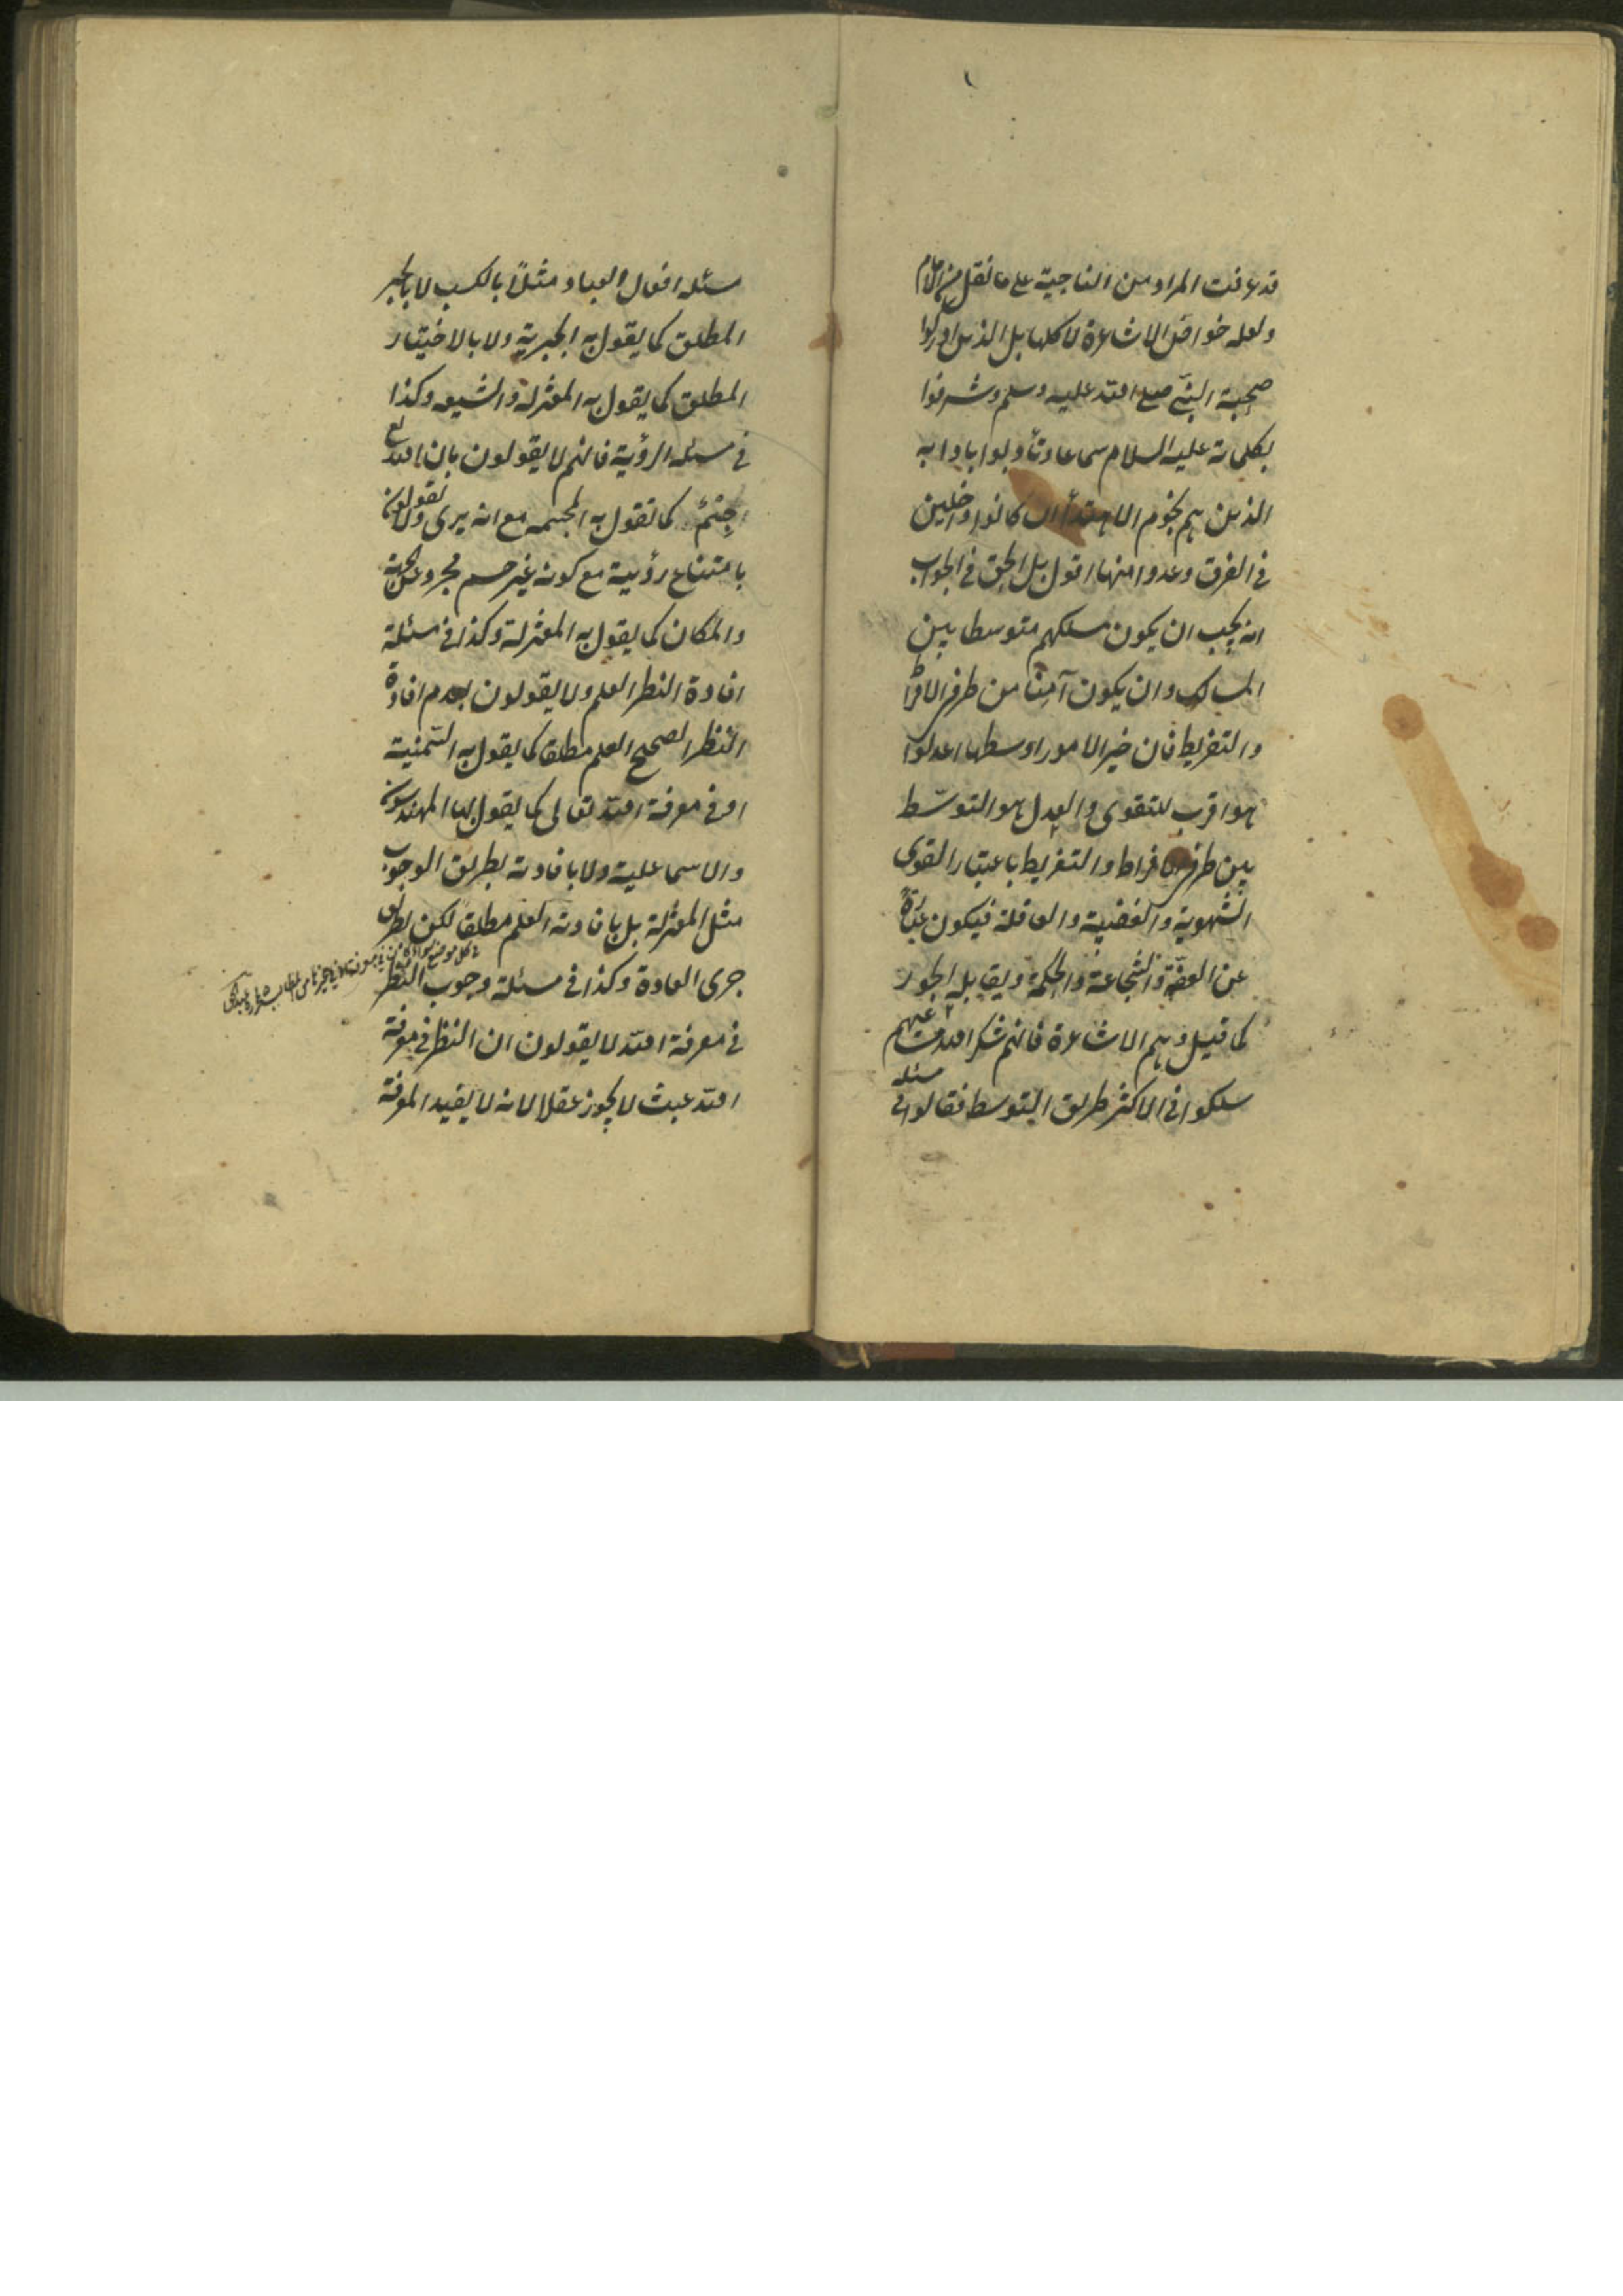 قد عرفت المراد من الناجية على ما نقل من الامام
ولعله خواص الاشاعرة لا كلها بل الذين ادركوا
صحبة النبى صلى الله عليه وسلم وشرفوا
بكلماته عليه السلام سماعا وتأدبوا بادابه
الذين هم نجوم الاهتداء كانوا داخلين
فى الفرق وعدوا منها اقول بل الحق فى الجواب
انه يجب ان يكون مسلكهم متوسطا بين
المسالك وان يكون آمنا من طرفى الافراط
والتفريط فان خير الامور اوسطها اعدلوا
هو اقرب للتقوى والعدل هو التوسّط
بين طرفى الافراط والتفريط باعتبار القوى
الشهوية والغضبية والعاقلة فيكون عبارة
عن العفّة والشجاعة والحكمة ويقابله الجور
كما قيل وهم الاشاعرة فانهم شكر الله مساعيهم
سلكوا فى الاكثر طريق التوسط فقالوا فى
مسئله
مسئله افعال العباد مثلاً بالكسب لا بالجبر
المطلق كما يقول به الجبرية ولا بالاختيار
المطلق كما يقول به المعتزلة والشيعه وكذا
فى مسئله الرؤية فانهم لا يقولون بان الله تع
جسم كما تقول به المجسمه مع انه يرى ولا يقولون
بامتناع رؤيية مع كونه غير جسم مجرد عن الجهة
والمكان كما يقول به المعتزلة وكذا فى مسئلة
افادة النظر العلم ولا يقولون بعدم افادة
النظر الصحيح العلم مطلقا كما يقول به السّمنية
او فى معرفة الله تعالى كما يقول بها المهندسون
والاسماعلية ولا بافادته بطريق الوجوب
مثل المعتزلة بل بافادته العلم مطلقا لكن بطريق
جرى العادة وكذا فى مسئلة وجوب النظر
فى معرفة الله لا يقولون ان النظر فى معرفة
الله عبث لا يجوز عقلا لانه لا يفيد المعرفة